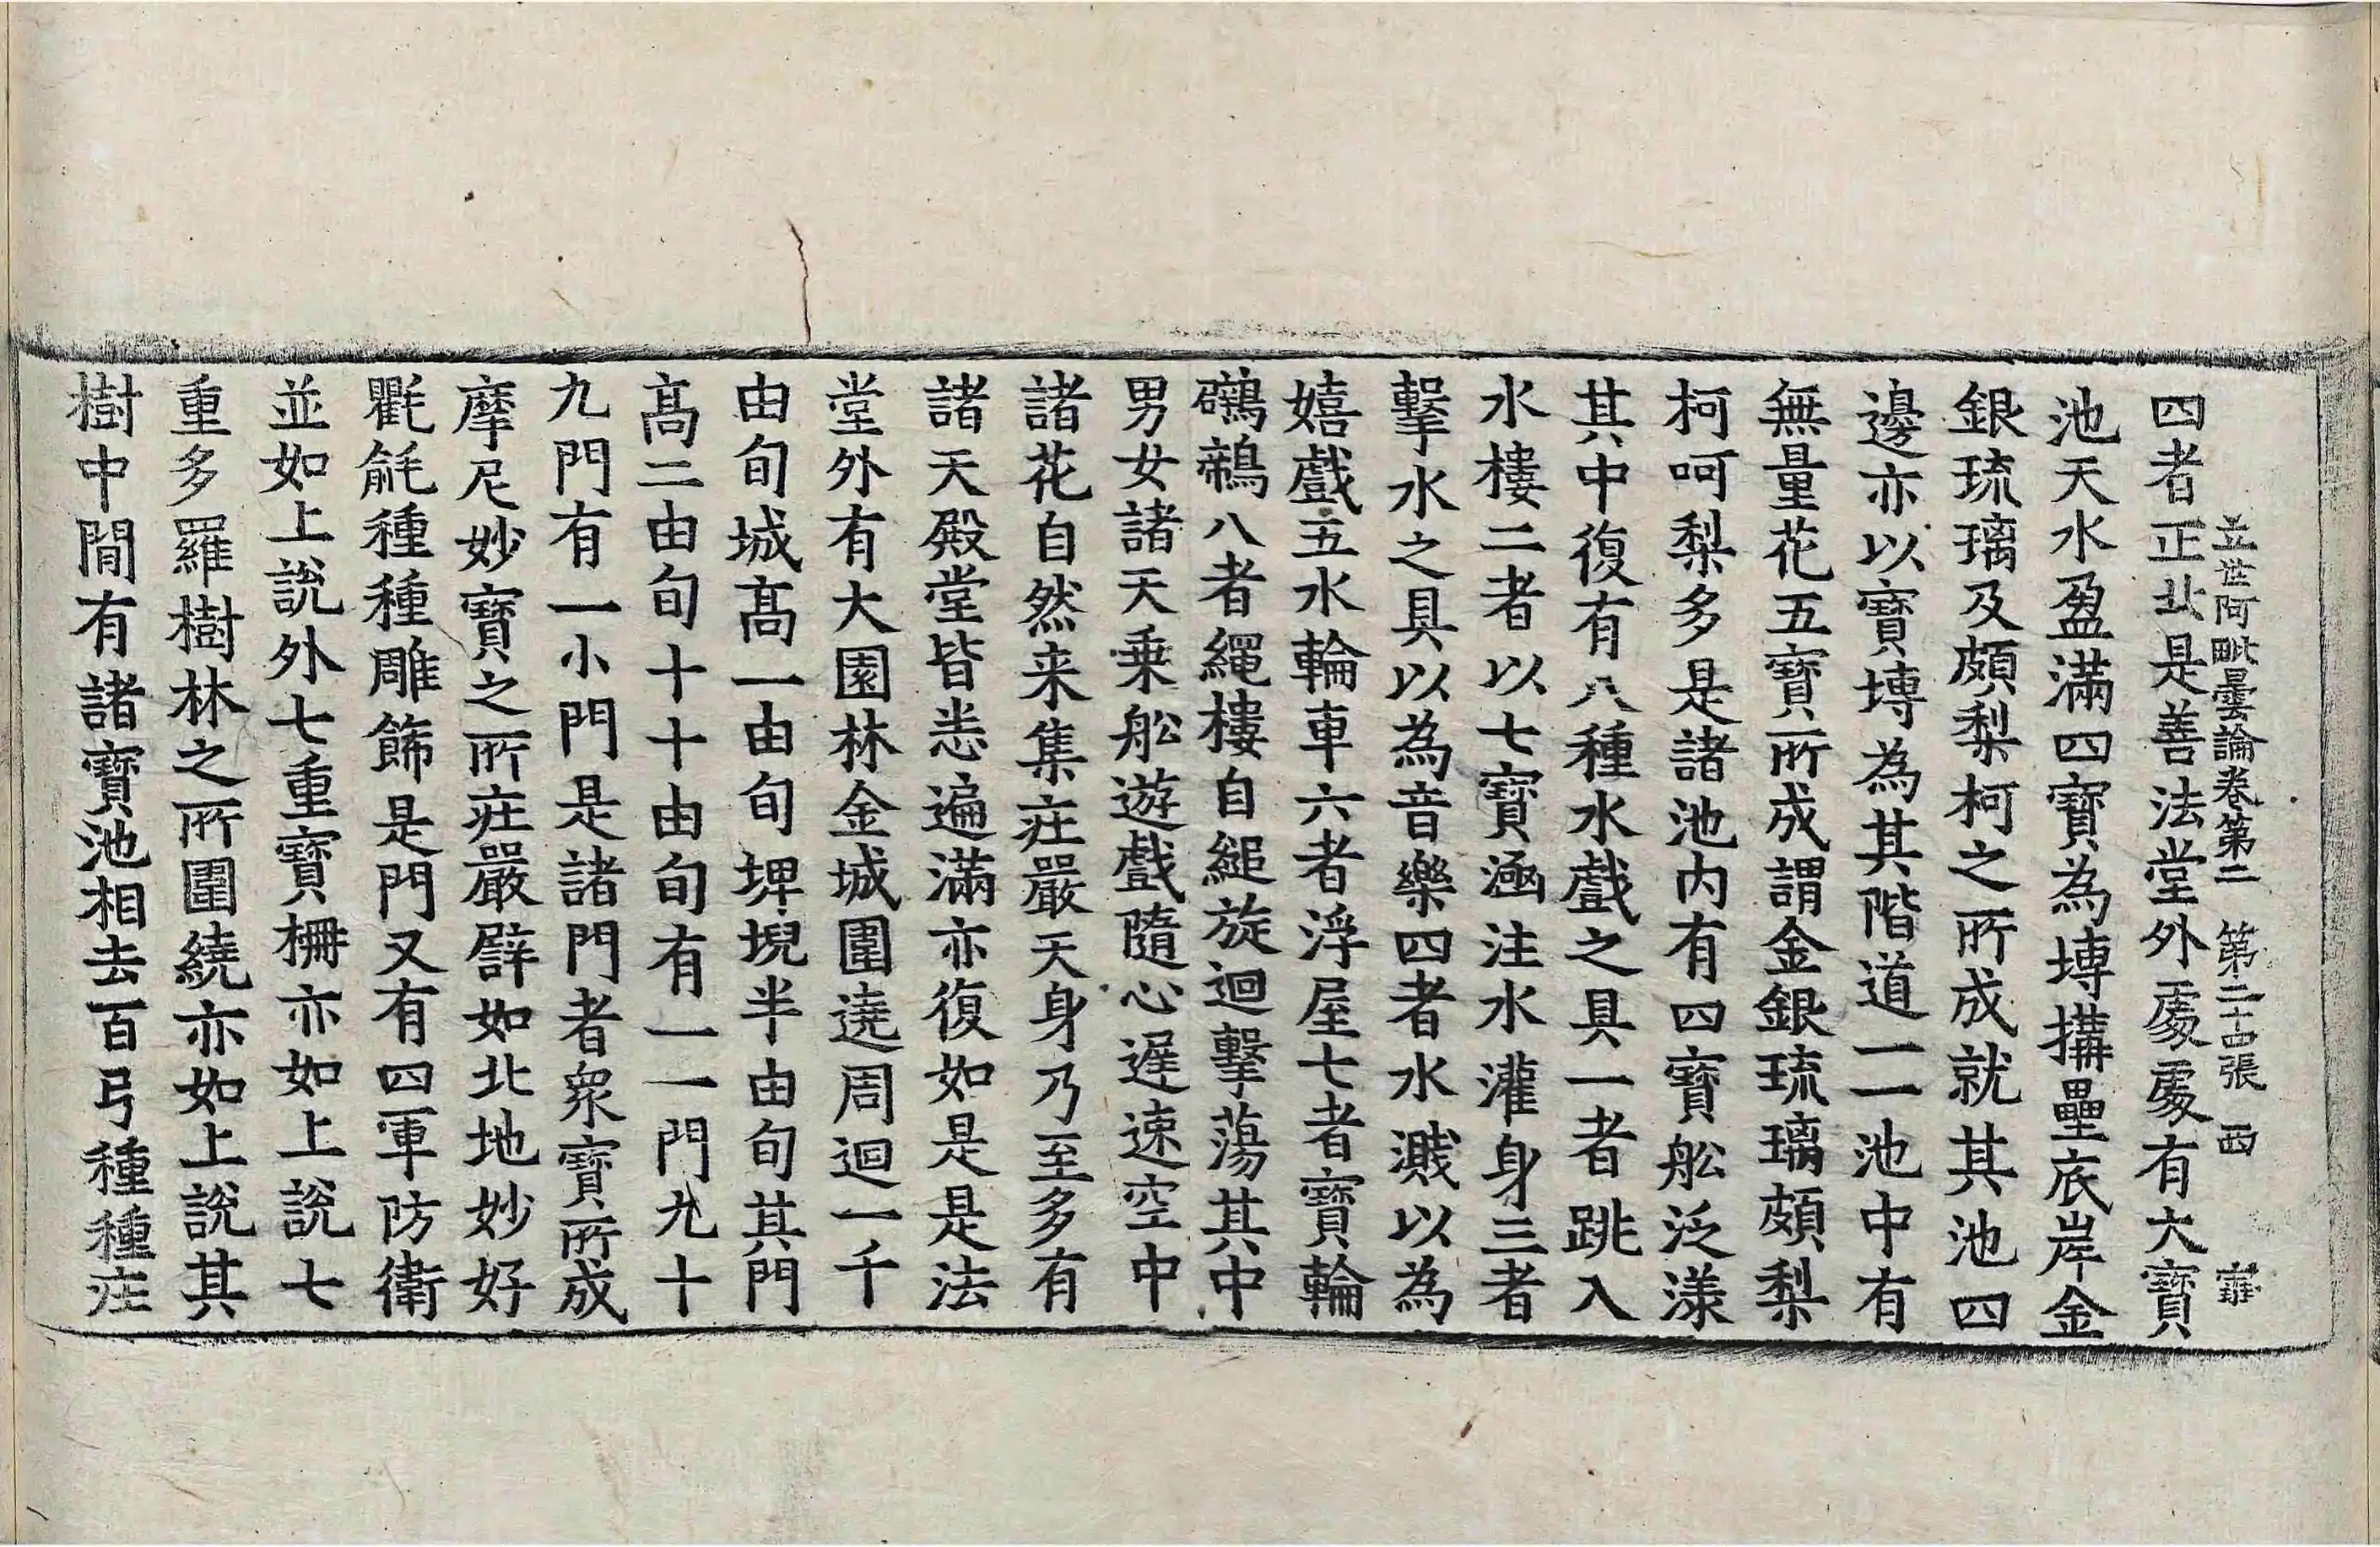 立世阿毗曇論卷第二　第二十四張　西　寉
四者正北是善法堂外處處有大寶
池天水盈滿四寶為塼搆壘底岸金
銀琉璃及頗梨柯之所成就其池四
邊亦以寶塼為其階道一一池中有
無量花五寶所成謂金銀琉璃頗梨
柯呵梨多是諸池內有四寶舩泛漾
其中復有八種水戲之具一者跳入
水樓二者以七寶凾注水灌身三者
擊水之具以為音樂四者水濺以為
嬉戲五水輪車六者浮屋七者寶輪
鸝鶙八者繩樓自縋旋迴擊蕩其中
男女諸天乗舩遊戲隨心遲速空中
諸花自然来集疘嚴天身乃至多有
諸天殿堂皆悉遍滿亦復如是是法
堂外有大園林金城圍遶周迴一千
由旬城髙一由旬埤堄半由旬其門
髙二由旬十十由旬有一一門九十
九門有一小門是諸門者衆寶所成
摩尼妙寶之所疘嚴辟如北地妙好
氍毹種種雕飾是門又有四軍防衛
並如上說外七重寶柵亦如上說七
重多羅樹林之所圍繞亦如上說其
樹中間有諸寶池相去百弓種種疘